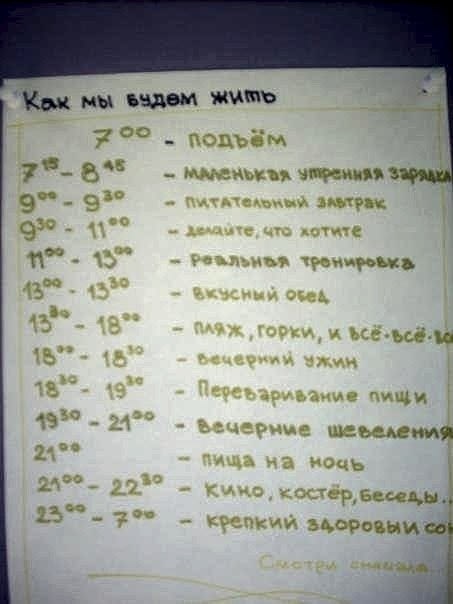 Как мы будем жить
7⁰⁰ - подъём
7¹⁵ - 8⁴⁵ - маленькая утренняя зарядка
9⁰⁰ - 9³⁰ - питательный завтрак
9³⁰ - 11⁰⁰ - делайте, что хотите
11⁰⁰ - 13⁰⁰ - реальная тренировка
13⁰⁰ - 13³⁰ - вкусный обед
13³⁰ - 18⁰⁰ - пляж, горки, и всё-всё-вс
18⁰⁰ - 18³⁰ - вечерний ужин
18³⁰ - 19³⁰ - Переваривание пищи
19³⁰ - 21⁰⁰ - вечерние шевеления
21⁰⁰ - пища на ночь
21⁰⁰ - 22³⁰ - кино, костёр, беседы..
23⁰⁰ - 7⁰⁰ - крепкий здоровый со
Смотри сначала...